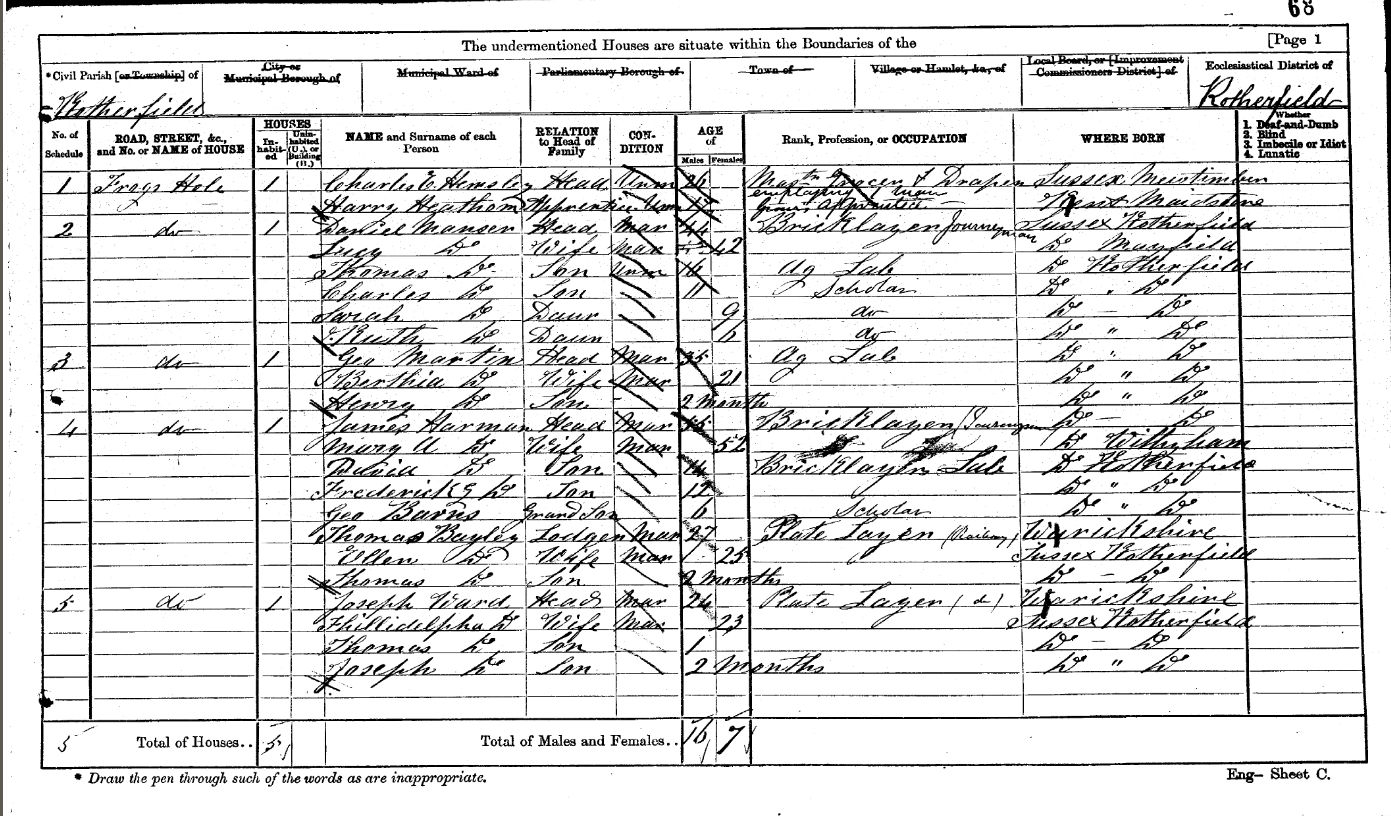 68
The undermentioned Houses are situate within the Boundaries of the [Page 1
*Civil Parish [or Township] of City or Municipal Borough of Municipal Ward of Parliamentary Borough of Town of Village or Hamlet, &c., of Local Board, or [Improvement Commissioners District] of Ecclesiastical District of
Rotherfield Rotherfield
No. of Schedule ROAD, STREET, &c., and No. or NAME of HOUSE HOUSES Inhabited Uninhabited (U.), or Building (B.) NAME and Surname of each Person RELATION to Head of Family CONDITION AGE of Males Females Rank, Profession, or OCCUPATION WHERE BORN Whether 1. Deaf-and-Dumb 2. Blind 3. Imbecile or Idiot 4. Lunatic
1 Frogs Hole 1 Charles E Hemsley Head Unm 26 Grocer & Draper Sussex
employing
Harry Apprentice Unm 17 Kent Maidstone
2 do 1 Daniel Manser Head Mar 44 Bricklayer Journeyman Sussex Rotherfield
Lucy Do Wife Mar 42 Do Mayfield
Thomas Do Son Unm 14 Ag Lab Do Rotherfield
Charles Do Son 11 Scholar Do " Do
Sarah Do Daur 9 do Do - Do
Ruth Do Daur 6 do Do " Do
3 do 1 Geo Martin Head Mar 35 Ag Lab Do " Do
Berthia Do Wife Mar 21 Do " Do
Henry Do Son 2 months Do " Do
4 do 1 James Harman Head Mar Bricklayer (Journeyman Do - Do
Mary A Do Wife Mar 52 Do Withyham
David Do Son 14 Bricklayers Lab Do Rotherfield
Frederick G Do Son 12 Do " Do
Geo Barns Grand Son 6 Scholar Do " Do
Thomas Bayley Lodger Mar 27 Plate Layer (Railway) Warickshire
Ellen Do Wife Mar 25 Sussex Rotherfield
Thomas Do Son 2 months Do - Do
5 do 1 Joseph Ward Head Mar 24 Plate Layer (do) Warickshire
Phillidelpha Do Wife Mar 23 Sussex Rotherfield
Thomas Do Son 1 Do - Do
Joseph Do Son 2 months Do " Do
5 Total of Houses.. 5 Total of Males and Females.. 16 7
* Draw the pen through such of the words as are inappropriate. Eng- Sheet C.